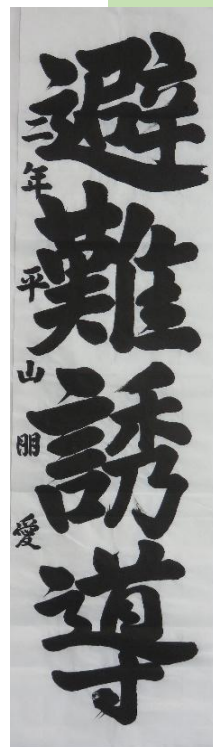 避難誘導
三年 平山朋愛